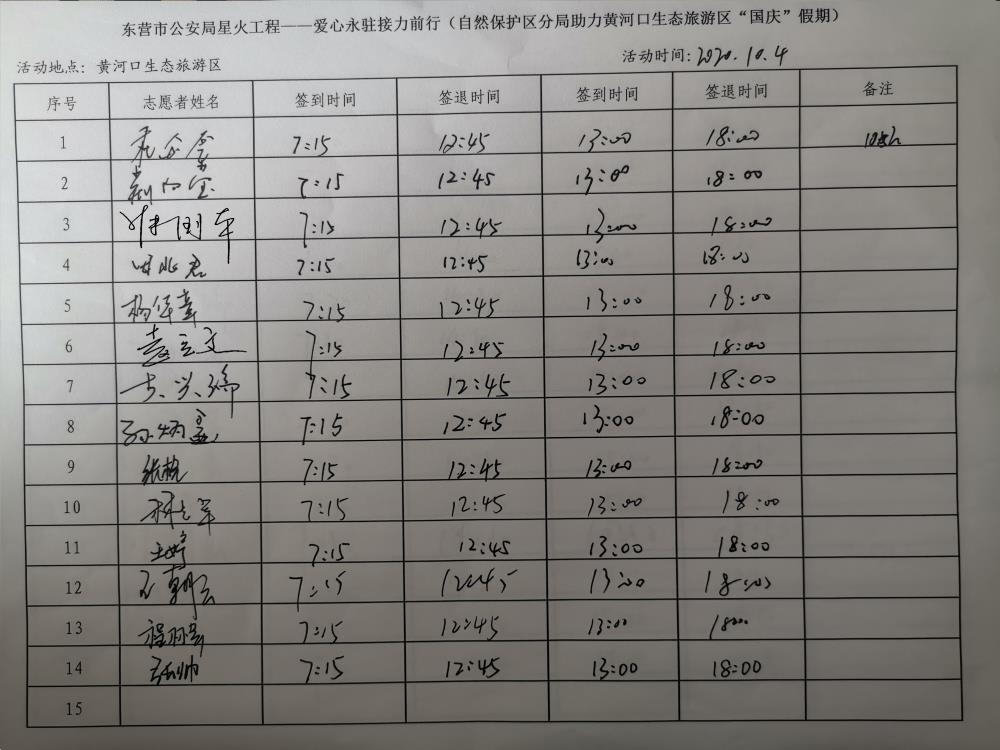 东营市公安局星火工程——爱心永驻接力前行（自然保护区分局助力黄河口生态旅游区“国庆”假期）
活动地点：黄河口生态旅游区 活动时间：2020.10.4
序号 志愿者姓名 签到时间 签退时间 签到时间 签退时间 备注
1 7:15 12:45 13:00 18:00
2 7:15 12:45 13:00 18:00
3 7:15 12:45 13:00 18:00
4 7:15 12:45 13:00 18:00
5 7:15 12:45 13:00 18:00
6 袁立文 7:15 12:45 13:00 18:00
7 7:15 12:45 13:00 18:00
8 孙炳鑫 7:15 12:45 13:00 18:00
9 张栋 7:15 12:45 13:00 18:00
10 7:15 12:45 13:00 18:00
11 王婷 7:15 12:45 13:00 18:00
12 7:15 12:45 13:00 18:00
13 7:15 12:45 13:00 1800
14 7:15 12:45 13:00 18:00
15